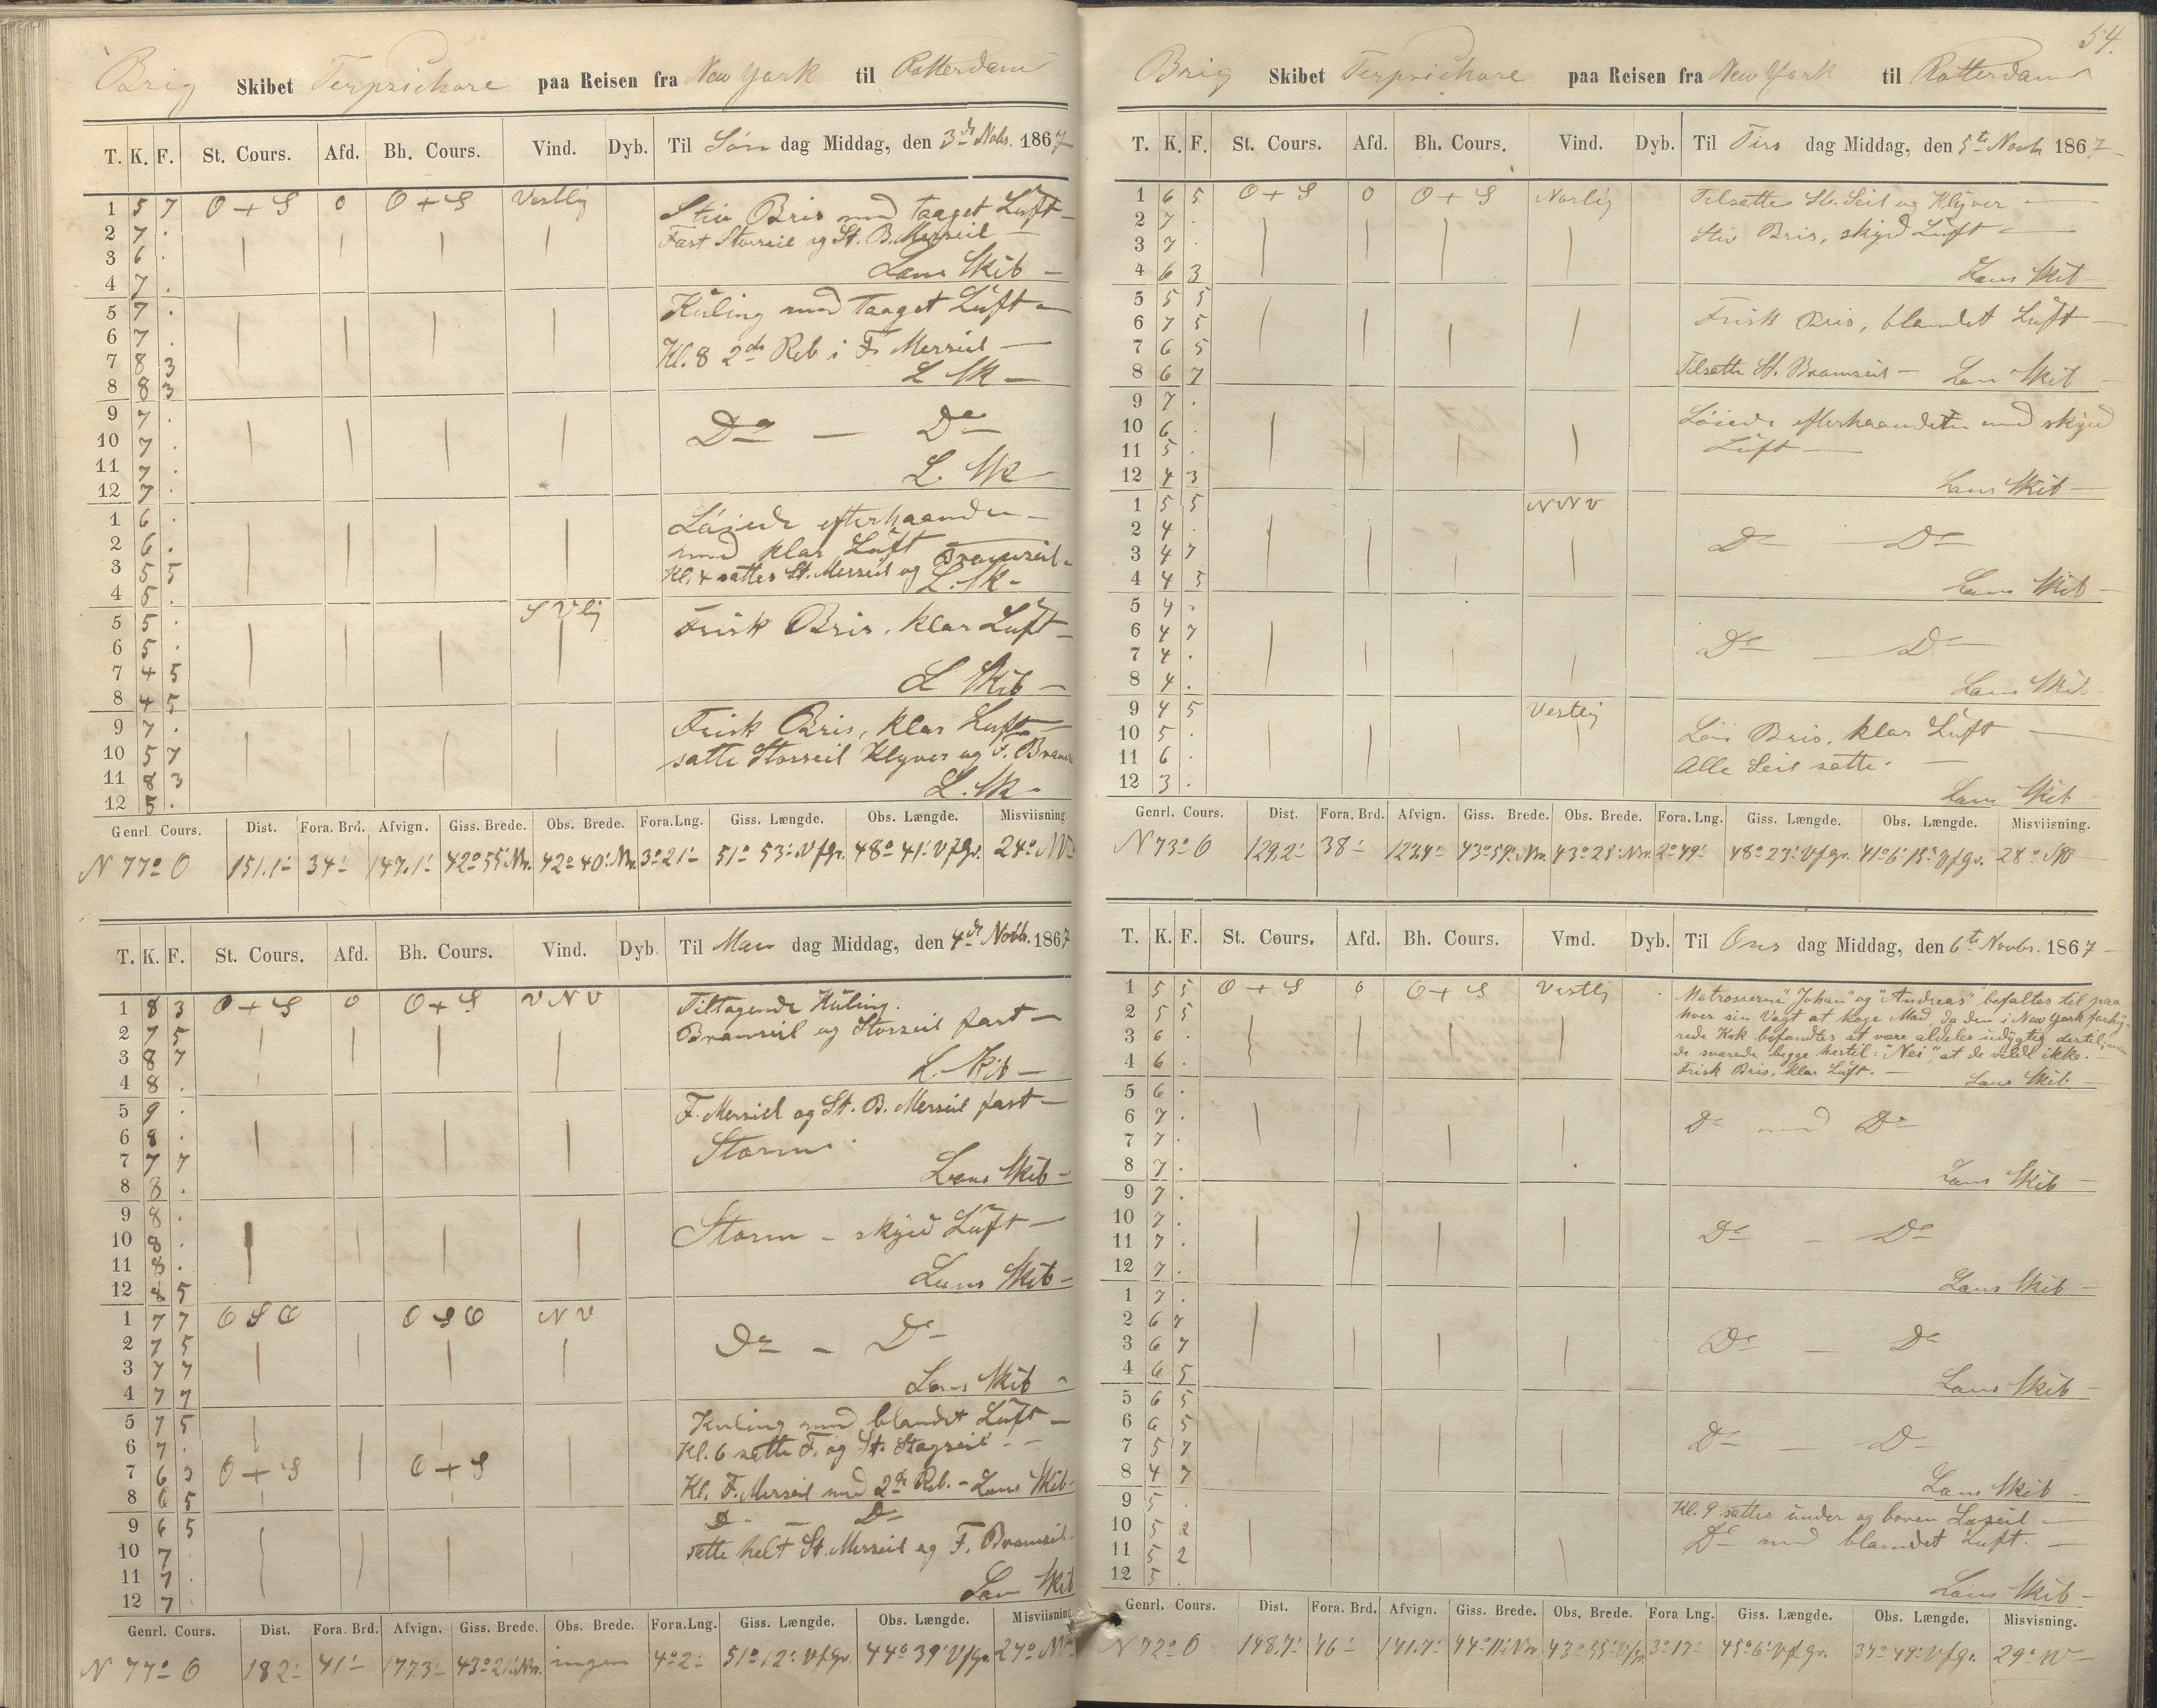 Brig Skibet Terpsichore paa Reisen fra New York til Rotterdam
T. K. F. St. Cours. Afd. Bh. Cours. Vind. Dyb. Til Søn dag Middag, den 3de Nobr. 1867
1 5 7 O + S 0 O + S Vestlig Stiv Bris med taaget Luft
2 7 . Fast Storseil og St. B. Merseil
3 6 .
4 7 . Lens Skib
5 7 . Kuling med taaget Luft
6 7 .
7 8 3 Kl. 8 2det Reb i F. Merseil
8 8 3 L Sk
9 7 .
10 7 . Do — Do
11 7 .
12 7 . L. Sk
1 6 . Løiede efterhaanden
2 6 . med klar Luft
3 5 5 Kl. 4 sattes St. Merseil og Bramseil
4 5 . L. Sk
5 5 . SVlig Frisk Bris, klar Luft
6 5 .
7 4 5
8 4 5 L Skib
9 7 . Frisk Bris, klar Luft
10 5 7 satte Storseil Klyver og F. Brams
11 8 3
12 5 . L. Sk
Genrl. Cours. Dist. Fora. Brd. Afvign. Giss. Brede. Obs. Brede. Fora.Lng. Giss. Længde. Obs. Længde. Misviisning
N 77° O 151.1' 34' 147.1' 42° 55' Nr. 42° 40' Nr. 3° 21' 51° 53' V f Gr. 48° 41' V f Gr. 24° NV
T. K. F. St. Cours. Afd. Bh. Cours. Vind. Dyb. Til Man dag Middag, den 4de Novbr. 1867
1 8 3 O + S 0 O + S VNV Tiltagende Kuling.
2 7 5 Bramseil og Storseil fast
3 8 7
4 8 . L. Skib
5 9 . F. Merseil og St. B. Merseil fast
6 8 .
7 7 7 Storm
8 8 . Lens Skib
9 8 .
10 8 . Storm – skyed Luft
11 8 .
12 8 5 Lens Skib
1 7 7 OSO OSO NV
2 7 5 Do – Do
3 7 7
4 7 7 Lens Skib
5 7 5 Kuling med blandet Luft
6 7 . Kl. 6 satte F. og St. Stagseil
7 6 3 O + S O + S
8 6 5 Kl. F. Merseil med 2de Reb. – Lens Skib
9 6 5 Do — Do
10 7 . satte helt St. Merseil og F. Bramseil
11 7 .
12 7 . Lens Skib
Genrl. Cours. Dist. Fora. Brd. Afvign. Giss. Brede. Obs. Brede. Fora.Lng. Giss. Længde. Obs. Længde. Misviisning
N 77° O 182' 41' 177.3' 43° 21' Nr. ingen 4° 2' 51° 12' V f Gr. 44° 39' V f Gr. 27° NV
54.
Brig Skibet Terpsichore paa Reisen fra New York til Rotterdam
T. K. F. St. Cours. Afd. Bh. Cours. Vind. Dyb. Til Tirs dag Middag, den 5te Novbr 1867
1 6 5 O + S 0 O + S Norlig Tilsatte St. Seil og Klyver
2 7 . Stiv Bris, skyed Luft
3 7 .
4 6 3 Lens Skib
5 5 5
6 7 5 Frisk Bris, blandet Luft
7 6 5
8 6 7 Tilsatte St. Bramseil – Lens Skib
9 7 . Løiede efterhaanden med skyed
10 6 . Luft
11 5 .
12 4 3 Lens Skib
1 5 5 NNV
2 4 . Do — Do
3 4 7
4 4 5 Lens Skib
5 4 .
6 4 7 Do — Do
7 4 .
8 4 . Lens Skib
9 4 5 Vestlig
10 5 . Løi Bris, klar Luft
11 6 . Alle Seil satte.
12 3 . Lens Skib
Genrl. Cours. Dist. Fora. Brd. Afvign. Giss. Brede. Obs. Brede. Fora.Lng. Giss. Længde. Obs. Længde. Misviisning.
N 73° O 129.2' 38' 123.4' 43° 59' Nr. 43° 28' Nr. 2° 49' 48° 23' V f Gr. 41° 6' 15" V f Gr. 28°
T. K. F. St. Cours. Afd. Bh. Cours. Vind. Dyb. Til Ons dag Middag, den 6te Novbr. 1867
1 5 5 O + S 0 O + S Vestlig Matroserne "Johan" og "Andreas" befaltes til paa
2 5 5 hver sin Vagt at koge Mad, da den i New York forhy-
3 6 . rede Kok befandtes at være aldeles udygtig dertil, men
4 6 . de svarede begge hertil: "Nei", at de vilde ikke.
Frisk Bris, klar Luft. — Lens Skib
5 6 .
6 7 . Do med Do
7 7 .
8 7 . Lens Skib
9 7 .
10 7 . Do – Do
11 7 .
12 7 . Lens Skib
1 7 .
2 6 7
3 6 7 Do — Do
4 6 5 Lens Skib
5 6 5
6 6 5
7 5 7 Do — Do
8 4 7 Lens Skib
9 5 . Kl. 9 sattes under og boven Læseil
10 5 2 Do med blandet Luft.
11 5 2
12 5 . Lens Skib
Genrl. Cours. Dist. Fora. Brd. Afvign. Giss. Brede. Obs. Brede. Fora Lng. Giss. Længde. Obs. Længde. Misvisning.
N 72° O 148.7' 46' 141.7' 44° 11' Nr 43° 55' 3° 17' 45° 6' V f Gr. 37° 49' V f Gr. 29° W